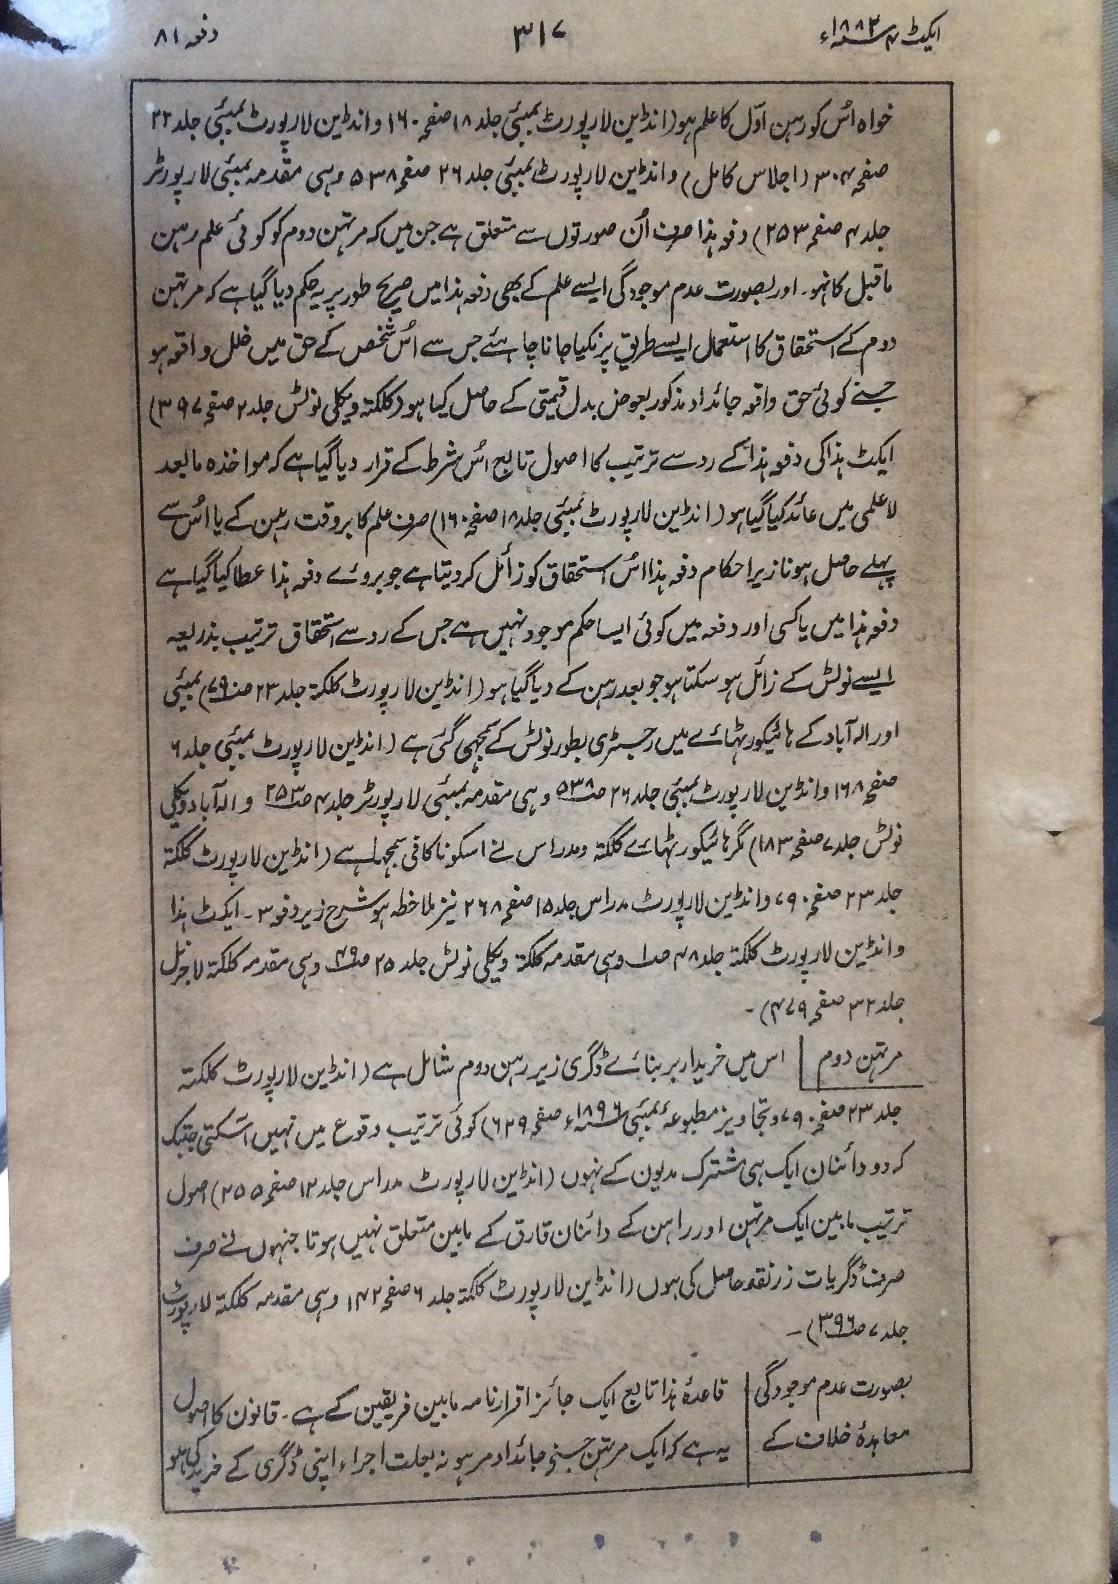 ایکٹ ۴ سنہ ۱۸۸۲ء
۳۱۷
دفعہ ۸۱
خواہ اُس کو رہن اوّل کا علم ہو (انڈین لا رپورٹ بمبئی جلد ۱۸ صفحہ ۱۶۰ و انڈین لا رپورٹ بمبئی جلد ۲۲
صفحہ ۳۰۴ (اجلاس کامل) و انڈین لا رپورٹ بمبئی جلد ۲۶ صفحہ ۵۳۸ وہی مقدمہ بمبئی لا رپورٹر
جلد ۴ صفحہ ۲۵۳) دفعہ ہذا صرف اُن صورتوں سے متعلق ہے جن میں کہ مرتہن دوم کو کوئی علم رہن
ماقبل کا نہو۔ اور بصورت عدم موجودگی ایسے علم کے بھی دفعہ ہذا میں صریح طور پر یہ حکم دیا گیا ہے کہ مرتہن
دوم کے استحقاق کا استعمال ایسے طریق پر نکیا جانا چاہئے جس سے اُس شخص کے حق میں خلل واقعہ ہو
جسنے کوئی حق واقعہ جائداد مذکور بعوض بدل قیمتی کے حاصل کیا ہو (کلکتہ ویکلی نوٹس جلد ۲ صفحہ ۳۹۷)
ایکٹ ہذا کی دفعہ ہذا کے رو سے ترتیب کا اصول تابع اُس شرط کے قرار دیا گیا ہے کہ مواخذہ مابعد
لاعلمی میں عائد کیا گیا ہو (انڈین لا رپورٹ بمبئی جلد ۱۸ صفحہ ۱۶۰) صرف علم کا بروقت رہن کے یا اُس سے
پہلے حاصل ہونا زیر احکام دفعہ ہذا اُس استحقاق کو زائل کر دیتا ہے جو بروئے دفعہ ہذا عطا کیا گیا ہے
دفعہ ہذا میں یا کسی اور دفعہ میں کوئی ایسا حکم موجود نہیں ہے جس کے رو سے استحقاق ترتیب بذریعہ
ایسے نوٹس کے زائل ہو سکتا ہو جو بعد رہن کے دیا گیا ہو (انڈین لا رپورٹ کلکتہ جلد ۲۳ صفحہ ۷۹۰) بمبئی
اور الہ آباد کے ہائیکورٹہائے میں رجسٹری بطور نوٹس کے سمجھی گئی ہے (انڈین لا رپورٹ بمبئی جلد ۶
صفحہ ۱۶۸ و انڈین لا رپورٹ بمبئی جلد ۲۶ صفحہ ۵۳۸ وہی مقدمہ بمبئی لا رپورٹر جلد ۴ صفحہ ۲۵۳ و الہ آباد ویکلی
نوٹس جلد ۷ صفحہ ۱۸۳) مگر ہائیکورٹہائے کلکتہ و مدراس نے اسکو ناکافی سمجھا ہے (انڈین لا رپورٹ کلکتہ
جلد ۲۳ صفحہ ۷۹۰ و انڈین لا رپورٹ مدراس جلد ۱۵ صفحہ ۲۶۸ نیز ملاحظہ ہو شرح زیر دفعہ ۳۔ ایکٹ ہذا
و انڈین لا رپورٹ کلکتہ جلد ۴۸ صفحہ ۱ وہی مقدمہ کلکتہ ویکلی نوٹس جلد ۲۵ صفحہ ۴۹ وہی مقدمہ کلکتہ لا جرنل
جلد ۳۲ صفحہ ۴۷۹)۔
مرتہن دوم
اس میں خریدار بر بنائے ڈگری زیر رہن دوم شامل ہے (انڈین لا رپورٹ کلکتہ
جلد ۲۳ صفحہ ۷۹۰ و تجاویز مطبوعہ بمبئی سنہ ۱۸۹۶ء صفحہ ۶۲۹) کوئی ترتیب وقوع میں نہیں آسکتی جبتک
کہ دو دائنان ایک ہی مشترک مدیون کے نہوں (انڈین لا رپورٹ مدراس جلد ۱۲ صفحہ ۲۵۵) اصول
ترتیب مابین ایک مرتہن اور راہن کے دائنان قارق کے مابین متعلق نہیں ہوتا جنہوں نے صرف
صرف ڈگریات زر نقد حاصل کی ہوں (انڈین لا رپورٹ کلکتہ جلد ۶ صفحہ ۱۴۲ وہی مقدمہ کلکتہ لا رپورٹ
جلد ۷ صفحہ ۳۹۶)۔
بصورت عدم موجودگی
معاہدہ خلاف کے
قاعدۂ ہذا تابع ایک جائز اقرارنامہ مابین فریقین کے ہے۔ قانون کا اصول
یہ ہے کہ ایک مرتہن جسنے جائداد مرہونہ بعلت اجراء اپنی ڈگری کے خرید کی ہو